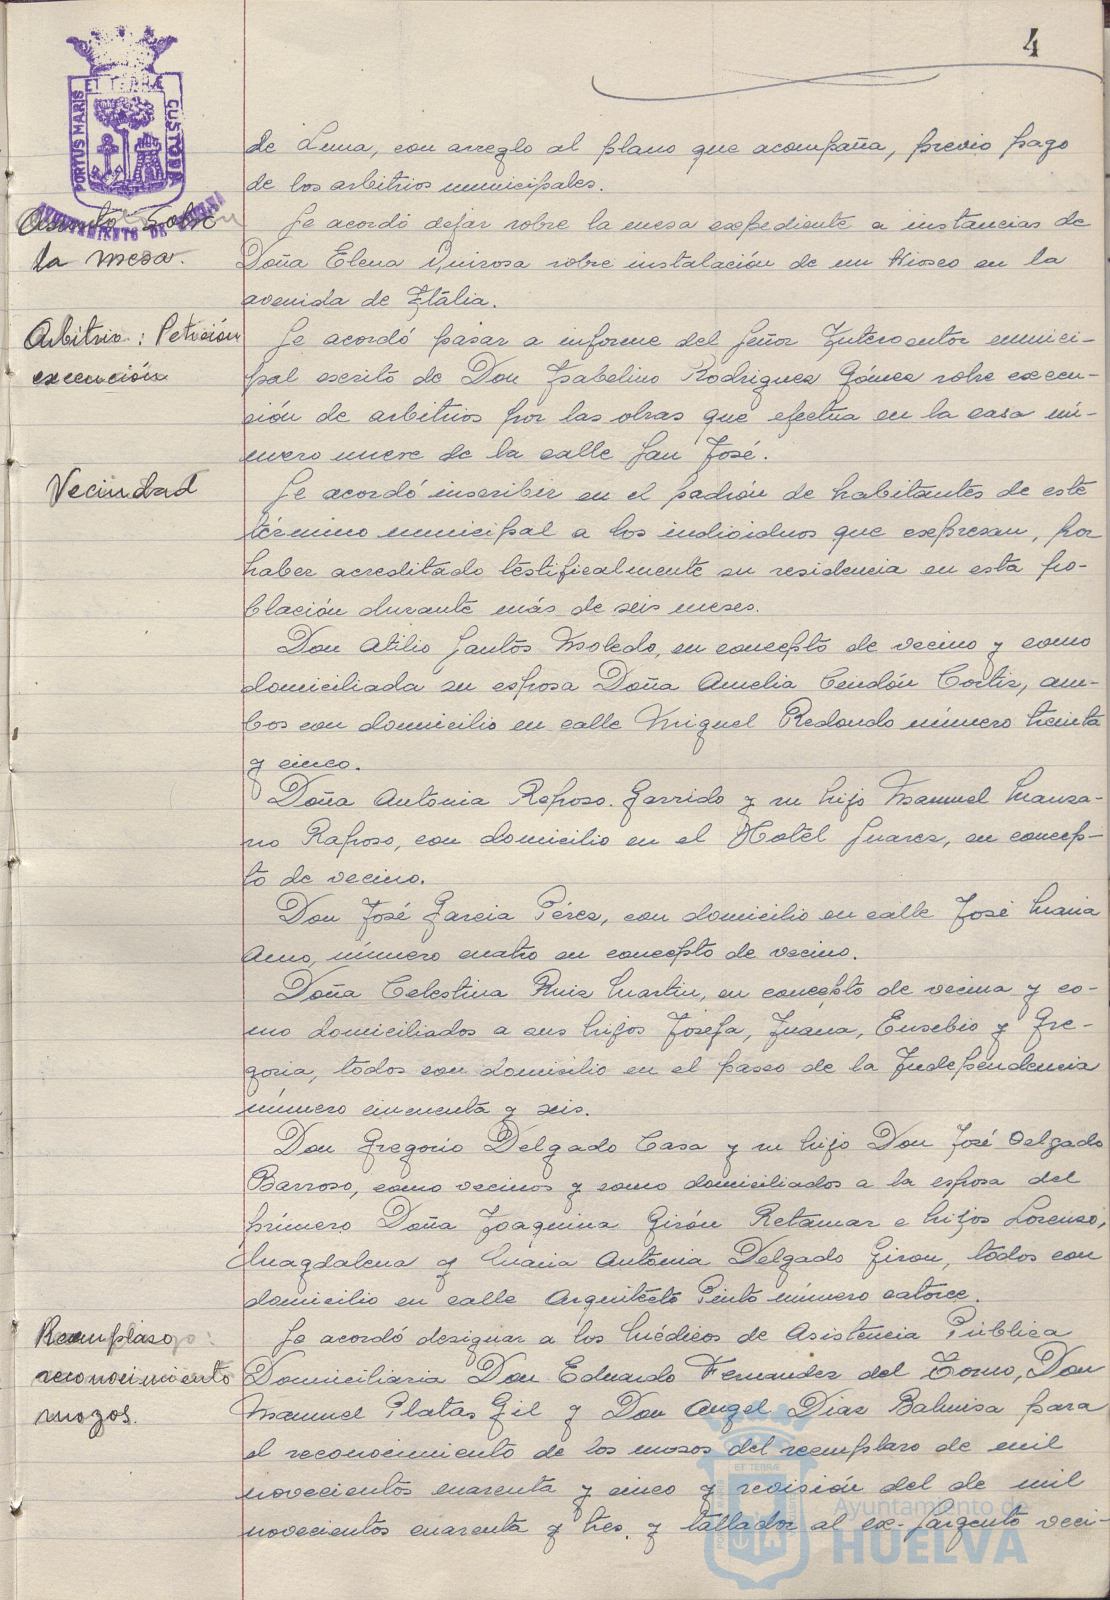 4
PORTUS MARIS
ET TERRÆ
CUSTODIA
AYUNTAMIENTO DE
de Luna, con arreglo al plano que acompaña, previo pago
de los arbitrios municipales.
Asunto sobre
la mesa.
Se acordó dejar sobre la mesa expediente a instancias de
Doña Elena Quirosa sobre instalación de un Kiosco en la
avenida de Itália.
Arbitrio: Petición
excención
Se acordó pasar a informe del Señor Interventor munici-
pal escrito de Don Isabelino Rodriguez Gómez sobre excen-
sión de arbitrios por las obras que efectua en la casa nú-
mero nueve de la calle San José.
Vecindad
Se acordó inscribir en el padrón de habitantes de este
término municipal a los individuos que expresan, por
haber acreditado testificalmente su residencia en esta po-
blación durante más de seis meses.
Don Atilio Santos Moledo, en concepto de vecino y como
domiciliada su esposa Doña Amelia Cendón Cortiz, am-
bos con domicilio en calle Miguel Redondo número treinta
y cinco.
Doña Antonia Raposo Garrido y su hijo Manuel Manza-
no Raposo, con domicilio en el Hotel Suarez, en concep-
to de vecino.
Don José Garcia Pérez, con domicilio en calle José Maria
Amo, número cuatro en concepto de vecino.
Doña Celestina Ruiz Martin, en concepto de vecina y co-
mo domiciliados a sus hijos Josefa, Juana, Eusebio y Gre-
goria, todos con domicilio en el paseo de la Independencia
número cincuenta y seis.
Don Gregorio Delgado Casa y su hijo Don José Delgado
Barroso, como vecinos y como domiciliados a la esposa del
primero Doña Joaquina Girón Retamar e hijos Lorenzo,
Magdalena y Maria Antonia Delgado Giron, todos con
domicilio en calle Arquitecto Pinto número catorce.
Reemplazo:
reconocimiento
mozos.
Se acordó designar a los Médicos de Asistencia Pública
Domiciliaria Don Eduardo Fernandez del Torno, Don
Manuel Platas Gil y Don Angel Diaz Balmisa para
el reconocimiento de los mozos del reemplazo de mil
novecientos cuarenta y cinco y revisión del de mil
novecientos cuarenta y tres, y tallador al ex-Sargento veci-
ET TERRÆ
Ayuntamiento de
HUELVA